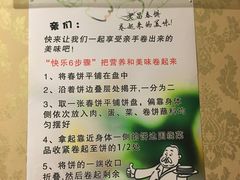 卷起来的美味!
亲们:
快来让我们一起享受亲手卷出来的
美味吧!
“快乐6步骤”把营养和美味卷起来
1、将春饼平铺在盘中
2、沿着饼边叠层处揭开,一分为二
3、取一张春饼平铺饼盘,偏靠身体
侧依次放入肉、蛋、菜、卷饼蘸料
匀摆好
4、拿起靠近身体一侧的饼边
品收紧卷起至饼的1/2处
5、将饼的一端收口
折叠,然后卷起剩余